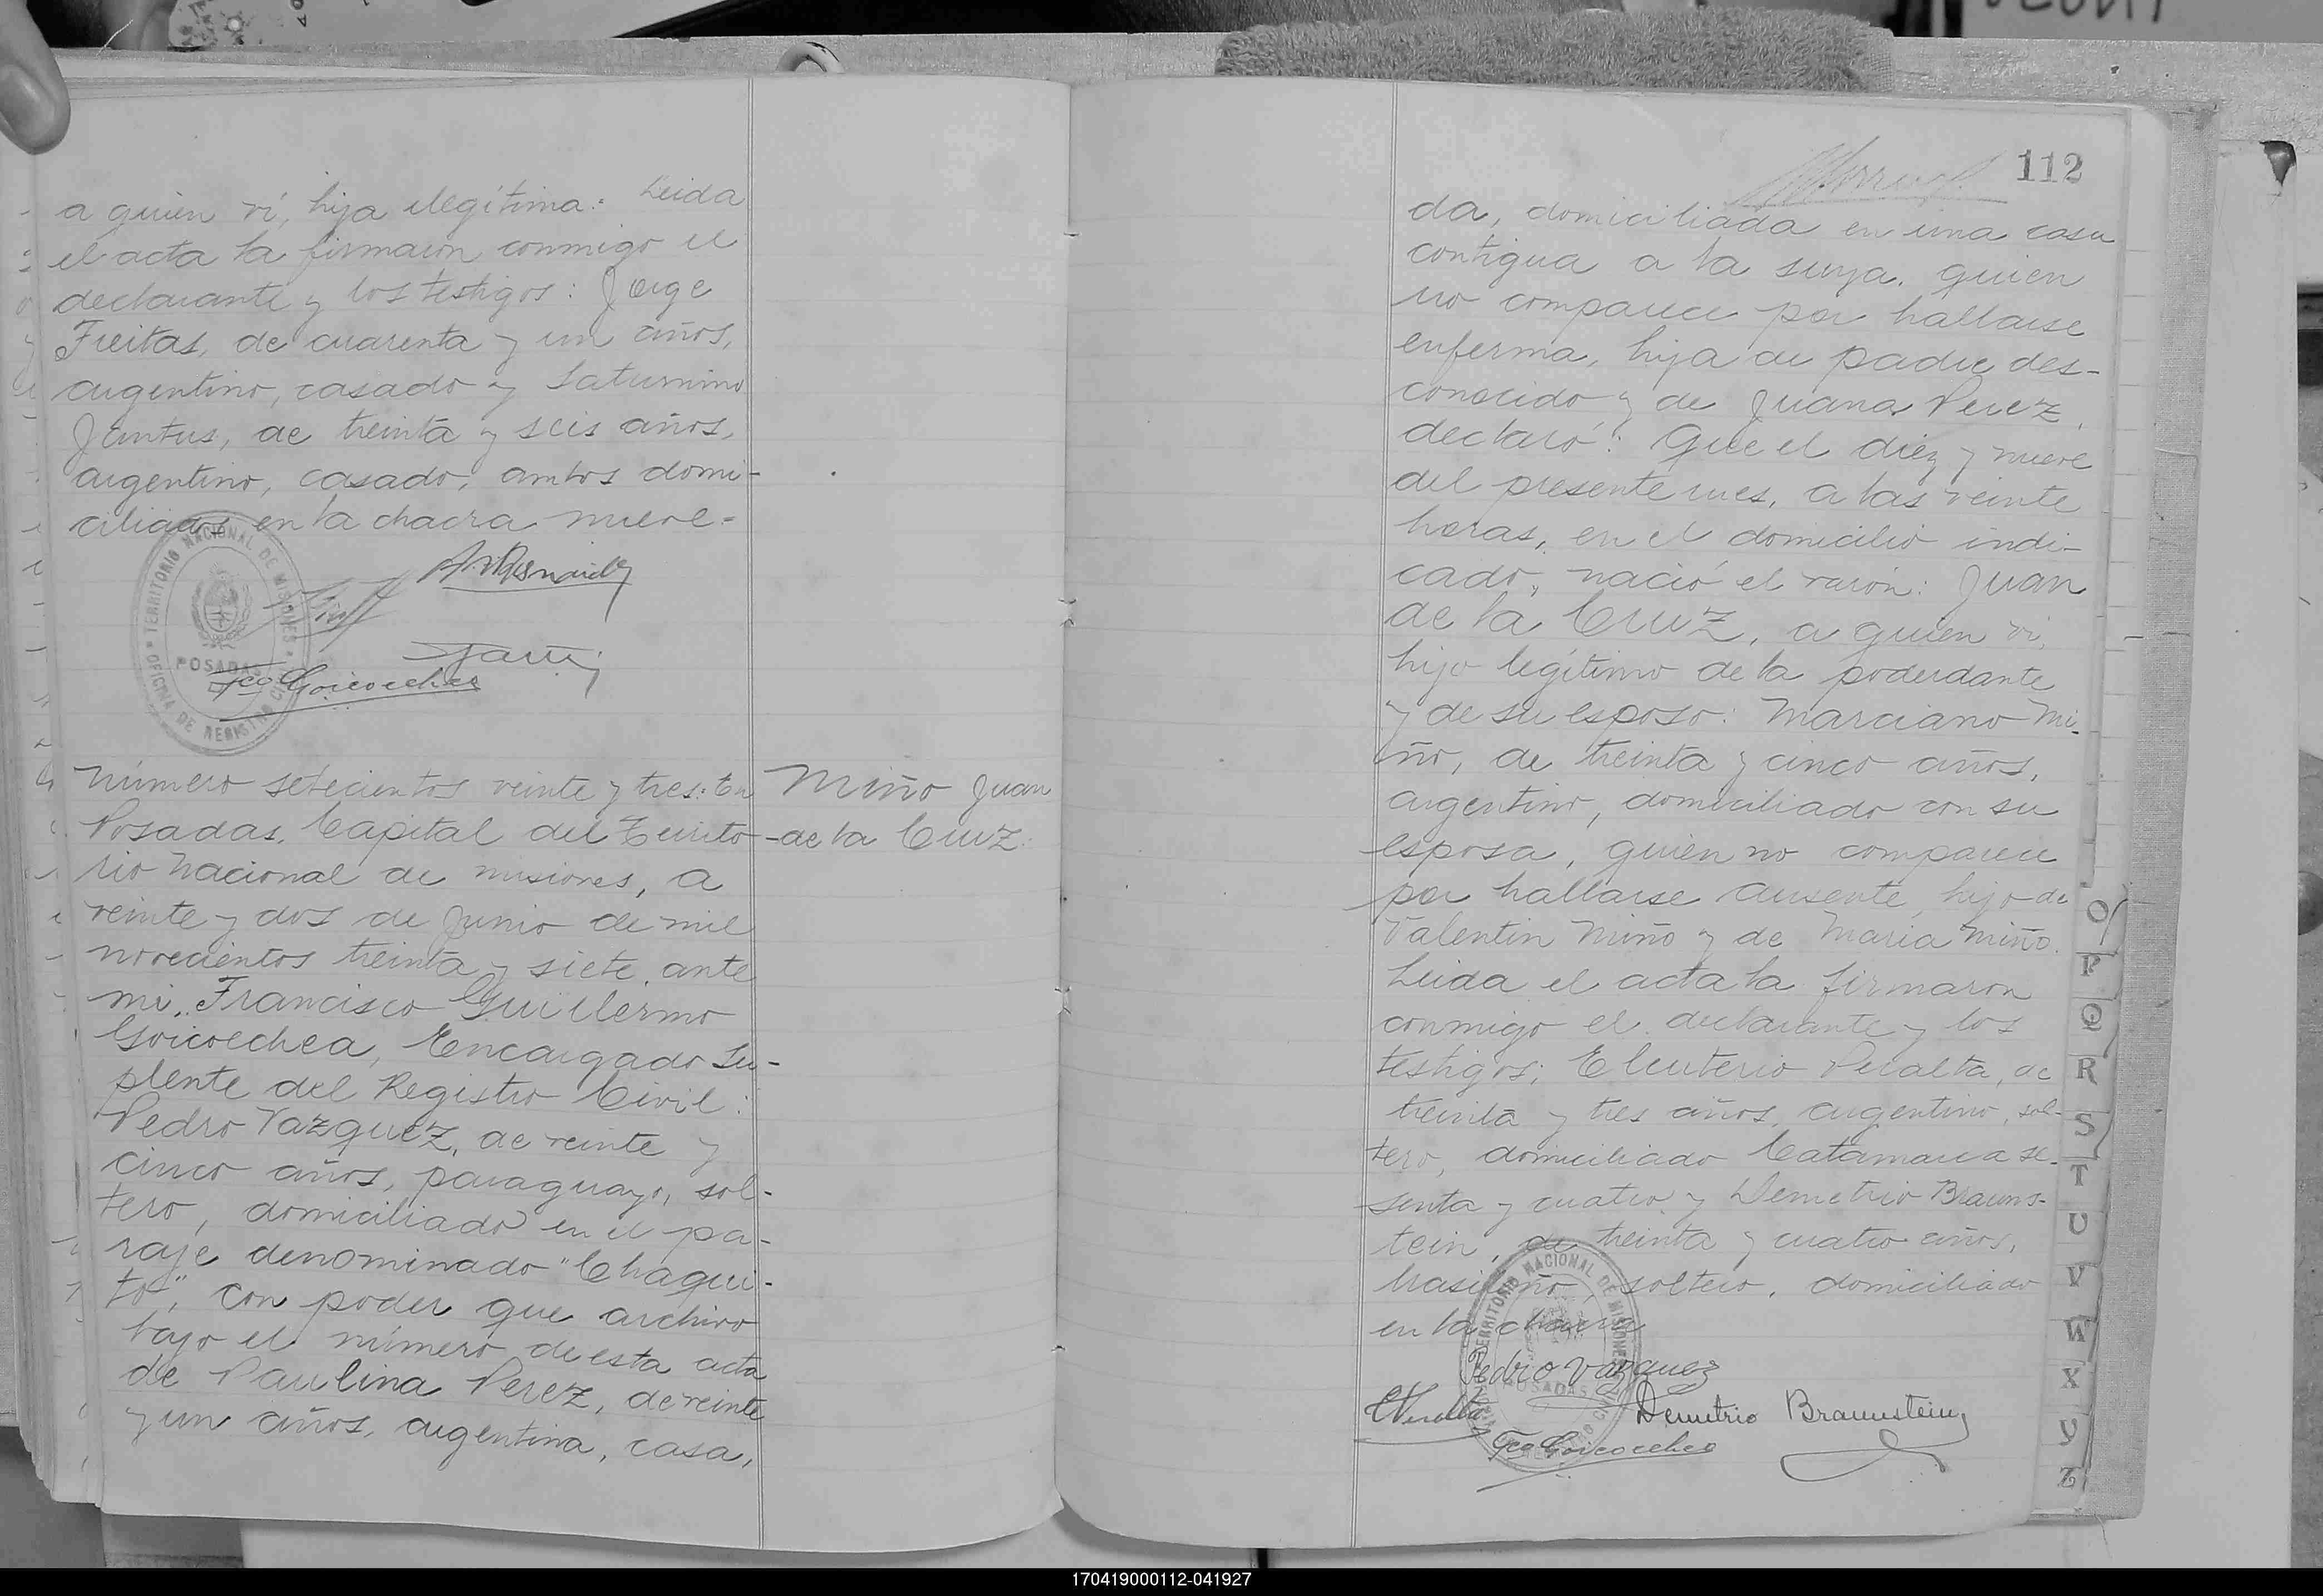 a quien ví, hija ilegítima: Leida
el acta la firmaron conmigo el
declarante y los testigos: Jorge
Freitas, de cuarenta y un años,
argentino, casado y Saturnino
de treinta y seis años,
argentino, casado, ambos domi-
ciliados en la chacra nueve=
TERRITORIO NACIONAL DE MISIONES
POSADAS
OFICINA DE REGISTRO CIVIL
Fco Goicoechea
Número setecientos veinte y tres: En
Posadas, Capital del Territo-
rio Nacional de Misiones, a
veinte y dos de Junio de mil
novecientos treinta y siete, ante
mi, Francisco Guillermo
Goicoechea, Encargado Su-
plente del Registro Civil:
Pedro Vazquez, de veinte y
cinco años, paraguayo, sol-
tero, domiciliado en el pa-
raje denominado "Chaqui-
to", con poder que archivo
bajo el número de esta acta
de Paulina Perez, de veinte
y un años, argentina, casa,
Miño Juan
de la Cruz.
112
da, domiciliada en una casa
contigua a la suya, quien
no comparece por hallarse
enferma, hija de padre des-
conocido y de Juana Perez,
declaró: Que el diez y nueve
del presente mes, a las veinte
horas, en el domicilio indi-
cado, nació el varón: Juan
de la Cruz, a quien vi,
hijo legítimo de la poderdante
y de su esposo: Marciano Mi-
ño, de treinta y cinco años,
argentino, domiciliado con su
esposa, quien no comparece
por hallarse ausente, hijo de
Valentin Miño y de Maria Miño.
Leida el acta la firmaron
conmigo el declarante y los
testigos; Eleuterio Peralta, de
treinta y tres años, argentino, sol-
tero, domiciliado Catamarca se-
senta y cuatro y Demetrio Brauns-
tein, de treinta y cuatro años,
brasileño, soltero, domiciliado
en la chacra
TERRITORIO NACIONAL DE MISIONES
POSADAS
Pedro Vazquez
Demetrio Braunstein
Fco Goicoechea
O
P
Q
R
S
T
U
V
W
X
Y
Z
170419000112-041927